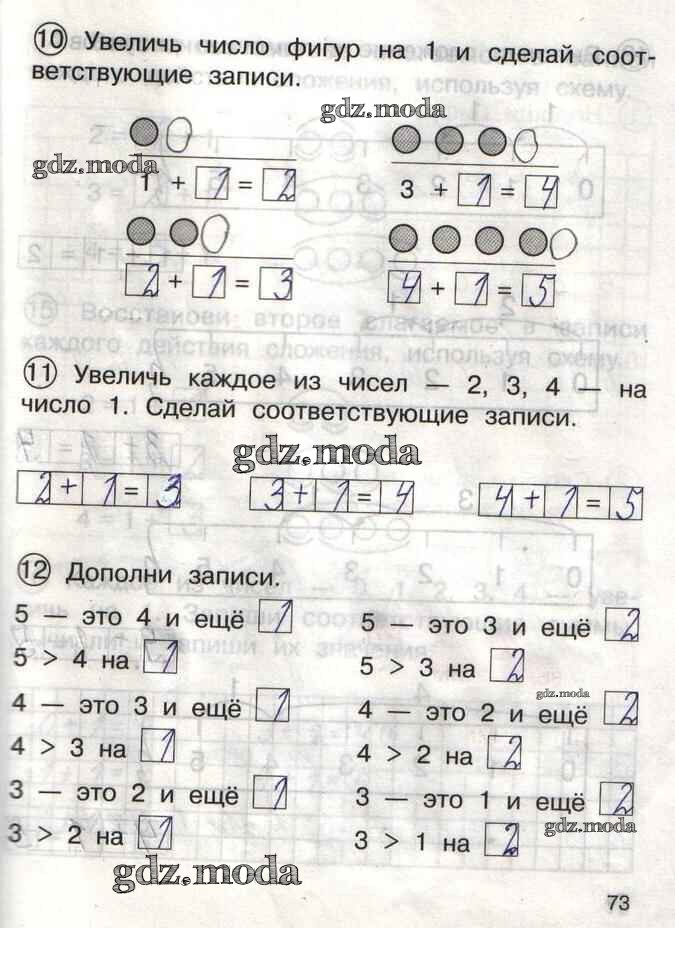 10 Увеличь число фигур на 1 и сделай соот-
ветствующие записи.
gdz.moda
gdz.moda
1 + 1 = 2
3 + 1 = 4
2 + 1 = 3
4 + 1 = 5
11 Увеличь каждое из чисел — 2, 3, 4 — на
число 1. Сделай соответствующие записи.
gdz.moda
2 + 1 = 3 3 + 1 = 4 4 + 1 = 5
12 Дополни записи.
5 — это 4 и ещё 1 5 — это 3 и ещё 2
5 > 4 на 1 5 > 3 на 2
gdz.moda
4 — это 3 и ещё 1 4 — это 2 и ещё 2
4 > 3 на 1 4 > 2 на 2
3 — это 2 и ещё 1 3 — это 1 и ещё 2
gdz.moda
3 > 2 на 1 3 > 1 на 2
gdz.moda
73